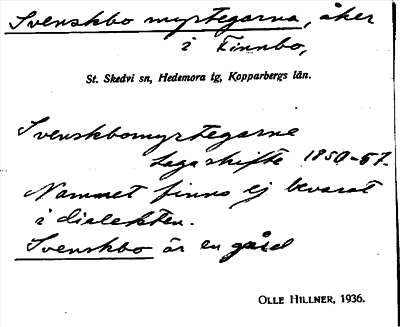 Svenskbo myrtegarna, åker
i Finnbo,
St. Skedvi sn, Hedemora tg, Kopparbergs län.
Svenskbomyrtegarne
Lagaskifte 1850-57.
Namnet finns ej bevarat
i dialekten.
Svenskbo är en gård
OLLE HILLNER, 1936.